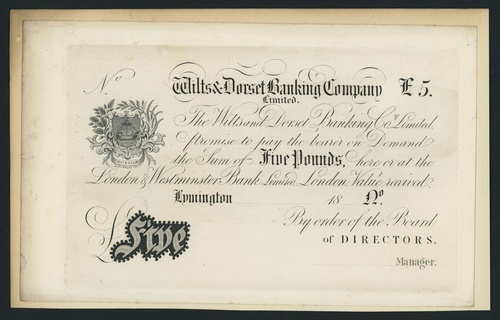 No
Wilts & Dorset Banking Company £5.
Limited.
The Wilts and Dorset Banking Coy. Limited.
promise to pay the bearer on Demand
the Sum of Five Pounds, here or at the
London & Westminster Bank Limited London Value received.
Lymington 18 No
By order of the Board
of DIRECTORS.
£ Five
Manager.